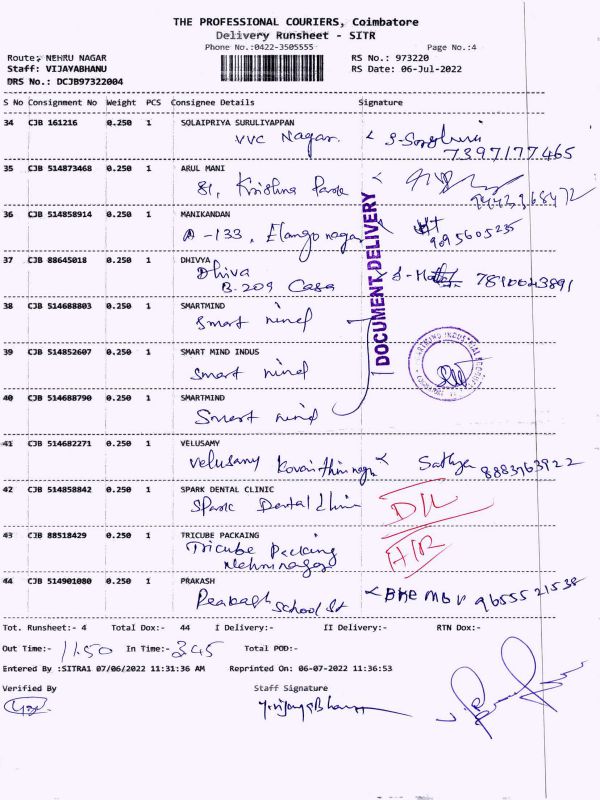 THE PROFESSIONAL COURIERS, Coimbatore
Delivery Runsheet - SITR
Phone No.:0422-3505555
Page No.:4
Route: NEHRU NAGAR
RS No.: 973220
Staff: VIJAYABHANU
RS Date: 06-Jul-2022
DRS No.: DCJB97322004
S No Consignment No Weight PCS Consignee Details Signature
34 CJB 161216 0.250 1 SOLAIPRIYA SURULIYAPPAN
VVC Nagar.
7397177465
35 CJB 514873468 0.250 1 ARUL MANI
81, Krishna
36 CJB 514858914 0.250 1 MANIKANDAN
A-133, Elango nagar
9095605235
37 CJB 88645018 0.250 1 DHIVYA
Dhiva
B.209 Casa
7810043891
DOCUMENT DELIVERY
38 CJB 514688803 0.250 1 SMARTMIND
Smart mind
39 CJB 514852607 0.250 1 SMART MIND INDUS
Smart mind
40 CJB 514688790 0.250 1 SMARTMIND
Smart mind
41 CJB 514682271 0.250 1 VELUSAMY
Velusamy Sathya 8883963922
42 CJB 514858842 0.250 1 SPARK DENTAL CLINIC
Spark Dental Clinic
D/L
43 CJB 88518429 0.250 1 TRICUBE PACKAING
Tricube Packing
Nehru nagar
44 CJB 514901080 0.250 1 PRAKASH
Prakash School St
9655521538
Tot. Runsheet:- 4 Total Dox:- 44 I Delivery:- II Delivery:- RTN Dox:-
Out Time:- 11.50 In Time:- 3.45 Total POD:-
Entered By :SITRA1 07/06/2022 11:31:36 AM Reprinted On: 06-07-2022 11:36:53
Verified By
Staff Signature